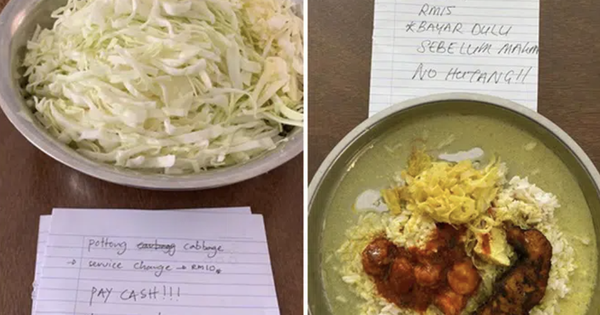 pottong cabbage
→ service change → RM10
PAY CASH!!!
RM15
*BAYAR DULU
SEBELUM MAKAN
NO HUTANG!!